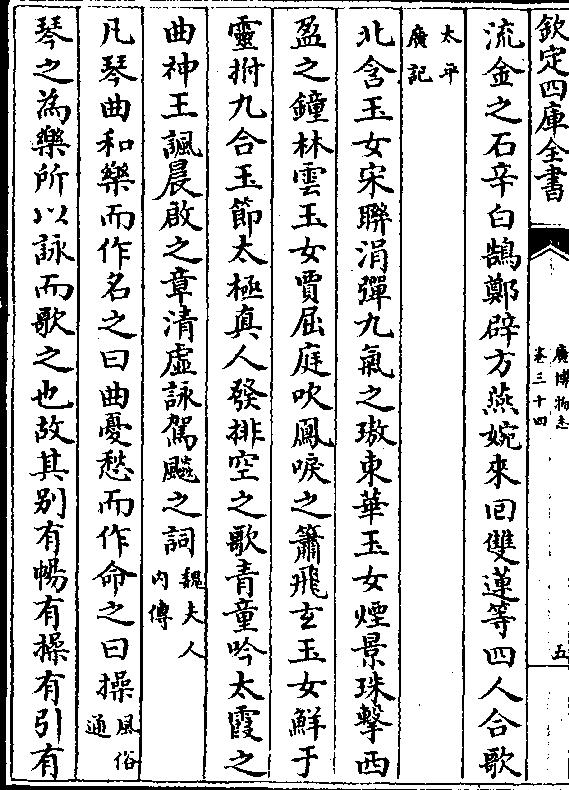 欽定四庫全書
廣博物志
卷三十四
五
流金之石辛白鵠鄭辟方燕婉來田雙蓮等四人合歌
太平
廣記
北含玉女宋聯涓彈九氣之璈東華玉女煙景珠擊西
盈之鐘林雲玉女賈屈庭吹鳳唳之簫飛玄玉女鮮于
靈拊九合玉節太極真人發排空之歌青童吟太霞之
曲神王諷晨啟之章清虛詠駕飇之詞魏夫人
内傳
凡琴曲和樂而作名之曰曲憂愁而作命之曰操風俗
通
琴之為樂所以詠而歌之也故其别有暢有操有引有